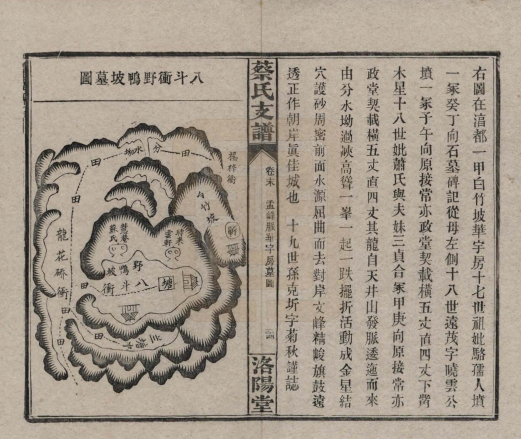 右圖在涪都一甲白竹坡華字房十七世祖妣駱孺人墳
一冢癸丁向石墓碑記從母左側十八世遠茂字曉雲公
墳一冢子午向原接常亦政堂契載橫五丈直四丈下臀
木星十八世妣蕭氏與夫妹三貞合冢甲庚向原接常亦
政堂契載橫五丈直四丈其龍自天井山發脈透迤而來
由分水坳過峽高聳一峯一起一跌擺折活動成金星結
穴護砂周密前面水源屈曲而去對岸文峰精峻旗鼓遠
透正作朝岸眞佳城也　十九世孫克圻字菊秋謹誌
蔡氏支譜
卷末
洛陽堂
八斗衝野鴨坡墓圖
楊梓衝
分水坳
田
田
田
田
龍花橋衝
蘇氏
野鴨坡
八斗衝
塘